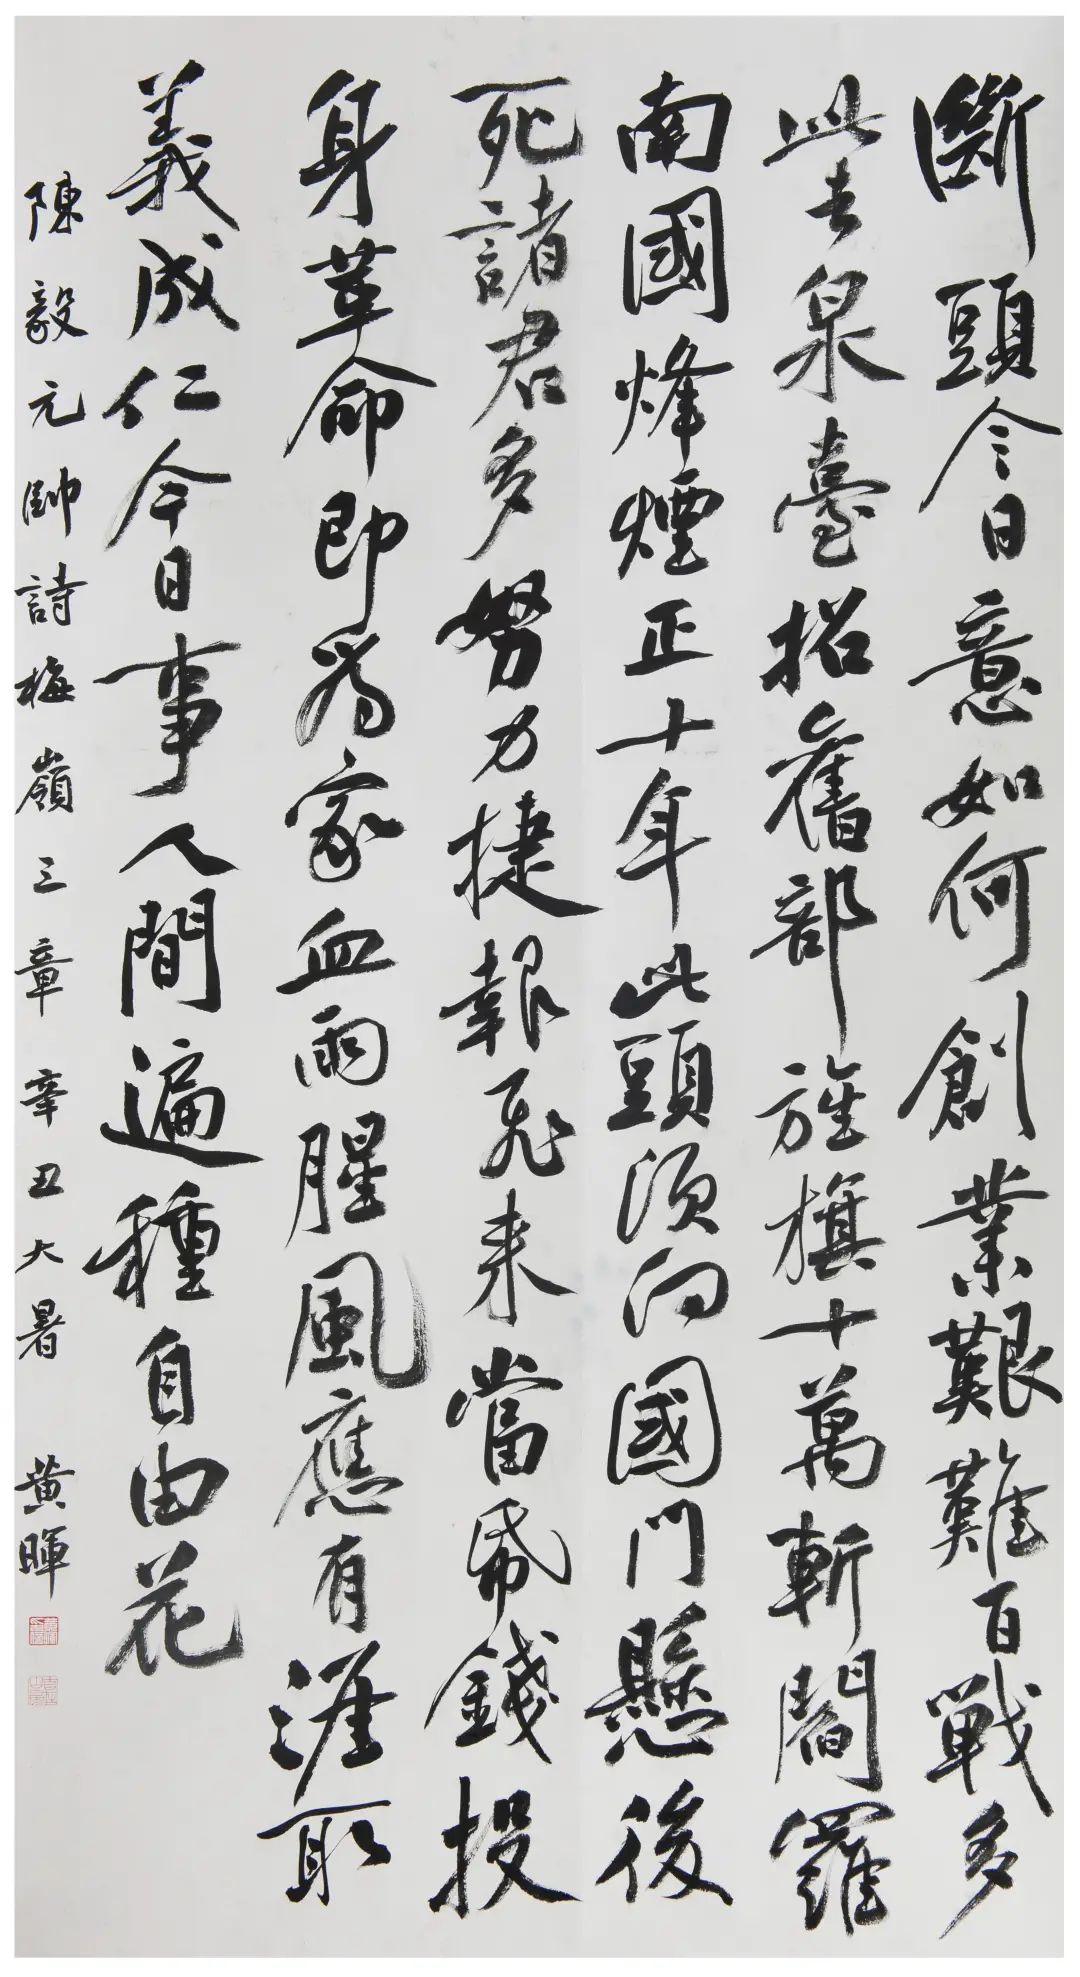 斷頭今日意如何創業艱難百戰多
此去泉臺招舊部旌旗十萬斬閻羅
南國烽煙正十年此頭須向國門懸後
死諸君多努力捷報飛来當紙錢投
身革命即為家血雨腥風應有涯取
義成仁今日事人間遍種自由花
陳毅元帥詩梅嶺三章辛丑大暑 黄暉